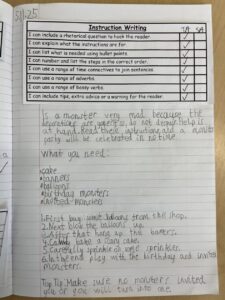 5.11.25
Instruction Writing
I can include a rhetorical question to hook the reader.
I can explain what the instructions are for
I can list what is needed using bullet points.
I can number and list the steps in the correct order.
I can use a range of time connectives to join sentences.
I can use a range of adverbs.
I can use a range of bossy verbs.
I can include tips, extra advice or a warning for the reader.
Is a monster very mad because the
are do not help is
at hand. Read these instructions and a monster
party will be celebrated in no time.
What you need:
•cake
•banners
•balloons
•birthday monster
•invited monsters
1.First buy some balloons from the shop.
2.Next blow the balloons up.
3.After that hang up the banners.
4. bake a cake.
5.Carefully sprinkle on
6.In the end play with the birthday and invited
monsters.
Top Tip: Make sure no monsters invited
you or you will turn into one.